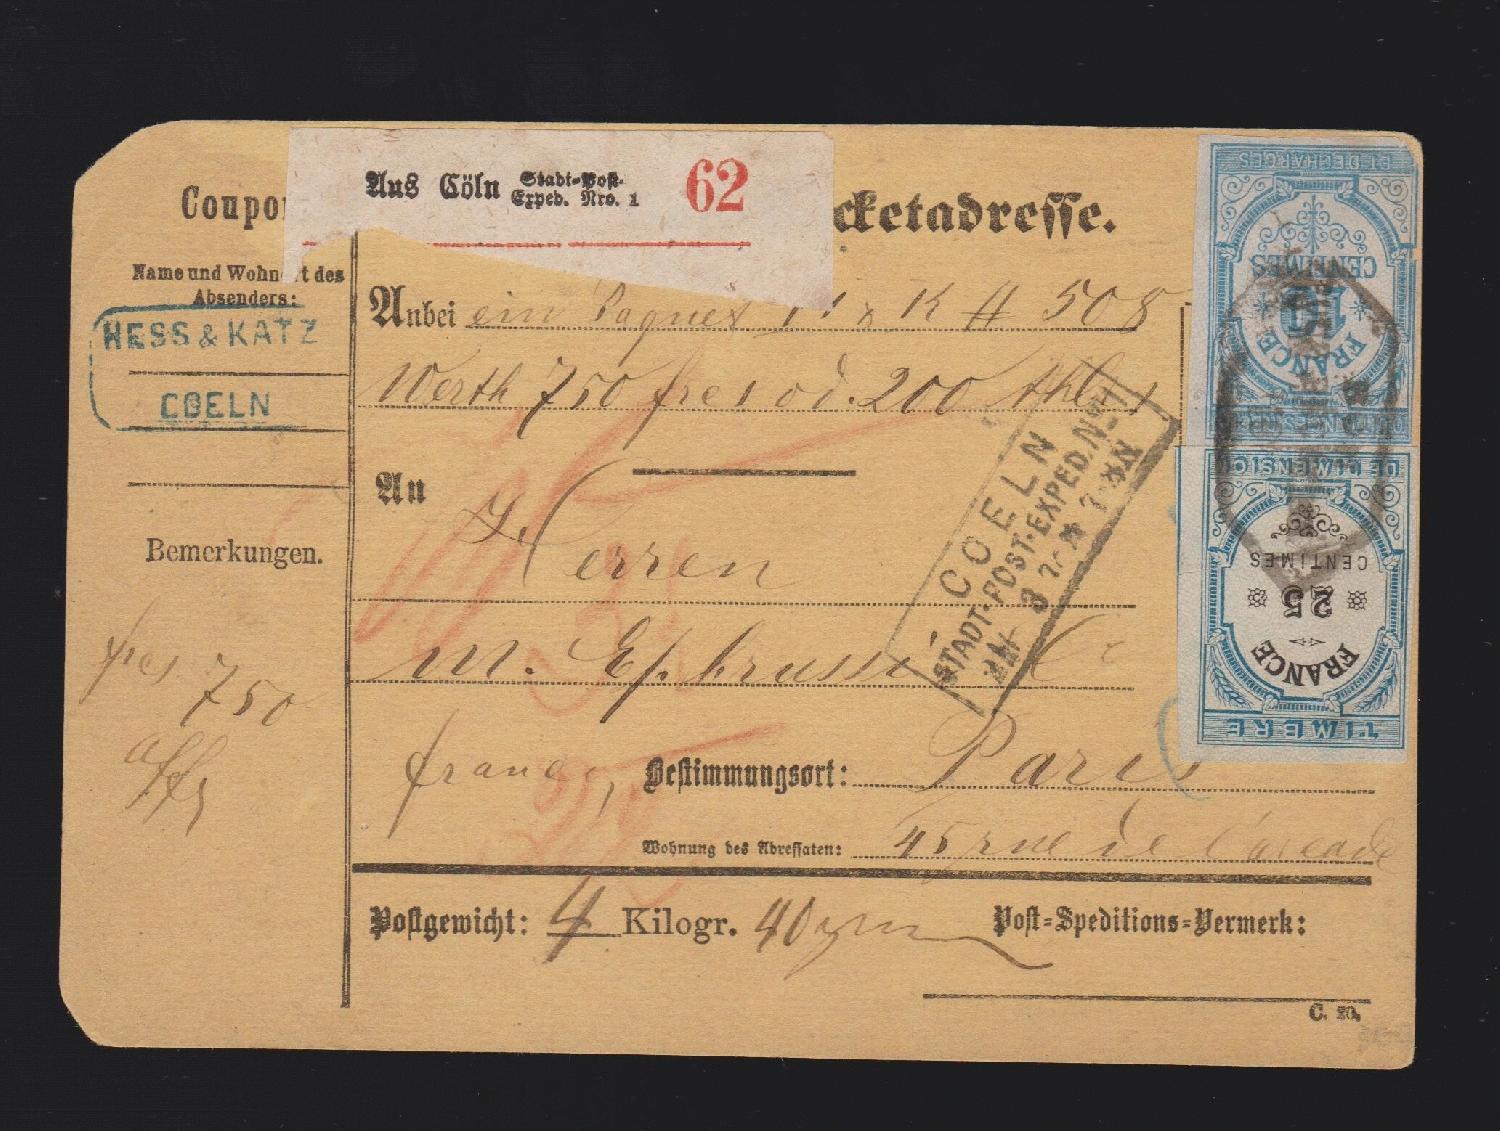 Aus Cöln Stadt-Post-
Exped. Nro. 1
62
Coupo
cketadresse.
Name und Wohn t des
Absenders:
HESS & KATZ
COELN
Bemerkungen.
frcs
750
Anbei ein Paquet K # 508
Werth 750 frcs od. 200 thlr
An
Herren
M. Ephrussi & Co
france, Bestimmungsort: Paris
Wohnung des Adressaten: 45 rue de
Postgewicht: 4 Kilogr. 40 grm
Post-Speditions-Vermerk:
C. 20.
COELN
STADT-POST-EXPED. No 1
ET DECHARGES
CENTIMES
10
FRANCE
DE DIMENSION
CENTIMES
25
FRANCE
TIMBRE